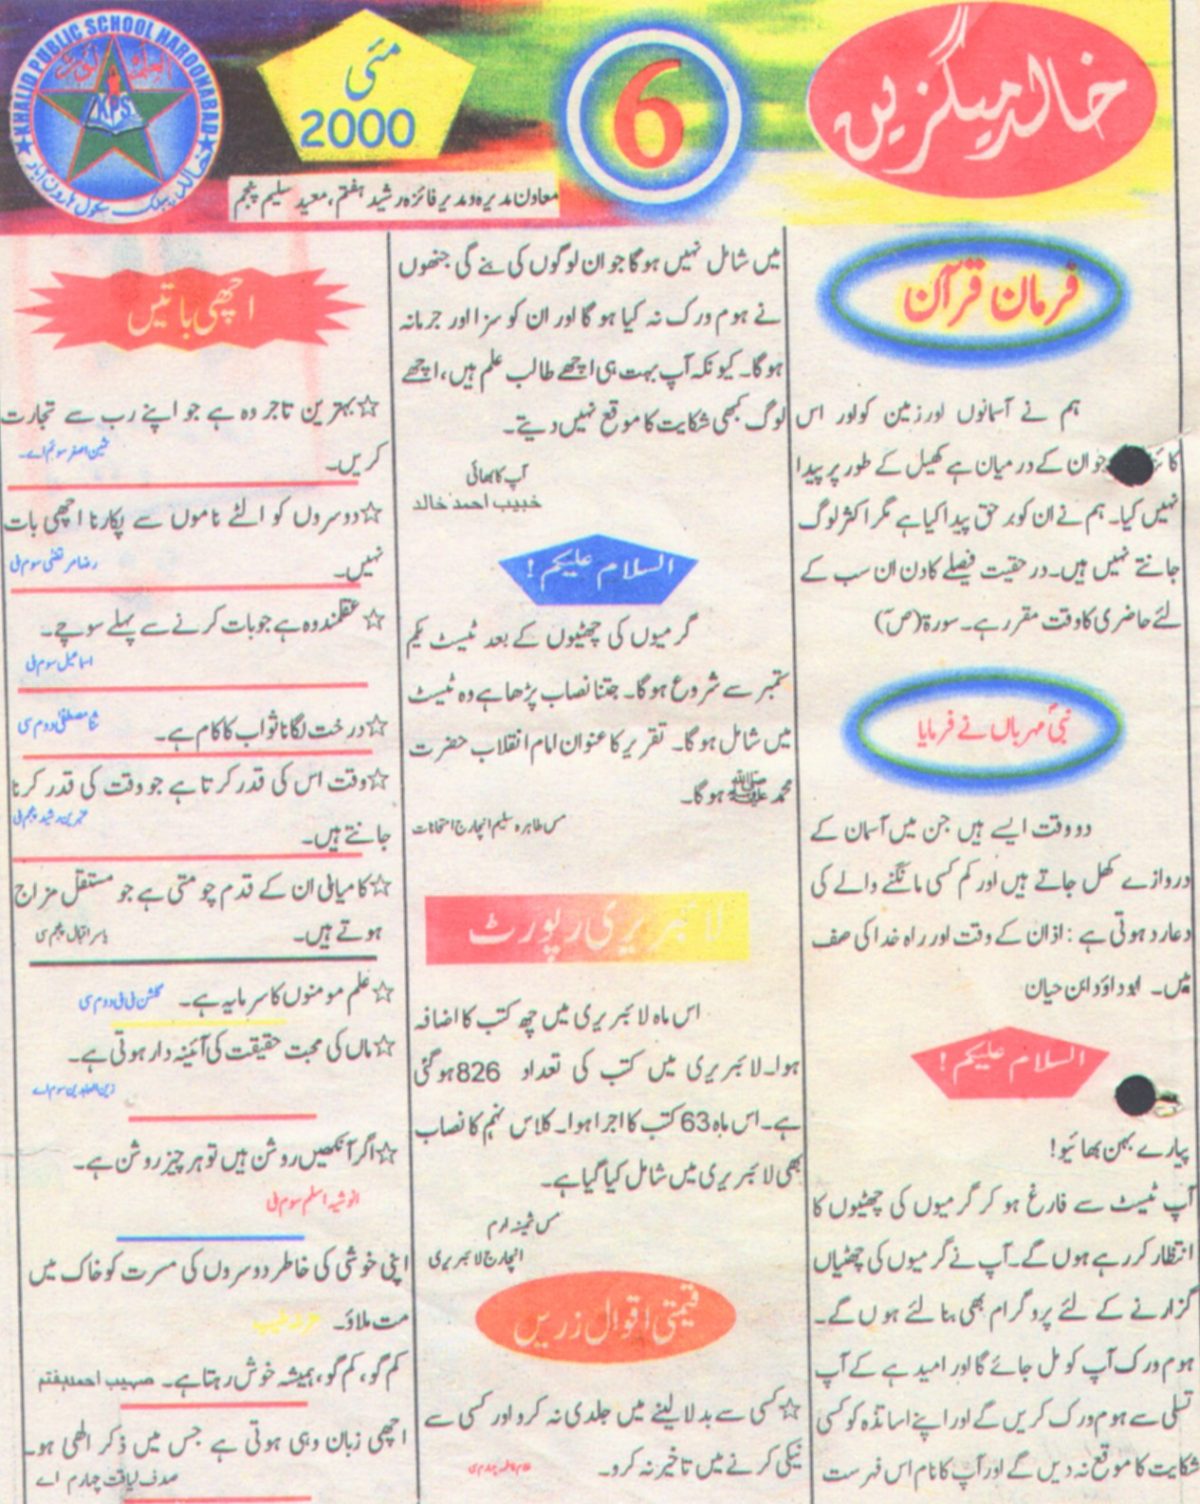 خالد میگزین
6
مئی
2000
KHALID PUBLIC SCHOOL HAROONABAD
KPS
خالد پبلک سکول ہارون آباد
معاون مدیرہ و مدیر فائزہ رشید ہفتم، معید سلیم پنجم
فرمان قرآن
ہم نے آسمانوں اور زمین کو اور اس
جو ان کے درمیان ہے کھیل کے طور پر پیدا
نہیں کیا۔ ہم نے ان کو برحق پیدا کیا ہے مگر اکثر لوگ
جانتے نہیں ہیں۔ در حقیقت فیصلے کا دن ان سب کے
لئے حاضری کا وقت مقرر ہے۔ سورۃ (صٓ)
نبیؐ مہرباں نے فرمایا
دو وقت ایسے ہیں جن میں آسمان کے
دروازے کھل جاتے ہیں اور کم کسی مانگنے والے کی
دعا رد ہوتی ہے : اذان کے وقت اور راہ خدا کی صف
میں۔ ابوداؤد ابن حیان
السلام علیکم!
پیارے بہن بھائیو!
آپ ٹیسٹ سے فارغ ہو کر گرمیوں کی چھٹیوں کا
انتظار کر رہے ہوں گے۔ آپ نے گرمیوں کی چھٹیاں
گزارنے کے لئے پروگرام بھی بنا لئے ہوں گے۔
ہوم ورک آپ کو مل جائے گا اور امید ہے کے آپ
تسلی سے ہوم ورک کریں گے اور اپنے اساتذہ کو کسی
شکایت کا موقع نہ دیں گے اور آپ کا نام اس فہرست
میں شامل نہیں ہوگا جو ان لوگوں کی بنے گی جنھوں
نے ہوم ورک نہ کیا ہوگا اور ان کو سزا اور جرمانہ
ہوگا۔ کیونکہ آپ بہت ہی اچھے طالب علم ہیں، اچھے
لوگ کبھی شکایت کا موقع نہیں دیتے۔
آپ کا بھائی
خبیب احمد خالد
السلام علیکم!
گرمیوں کی چھٹیوں کے بعد ٹیسٹ یکم
ستمبر سے شروع ہوگا۔ جتنا نصاب پڑھا ہے وہ ٹیسٹ
میں شامل ہوگا۔ تقریر کا عنوان امام انقلاب حضرت
محمد ﷺ ہوگا۔
مس طاہرہ سلیم انچارج امتحانات
لائبریری رپورٹ
اس ماہ لائبریری میں چھ کتب کا اضافہ
ہوا۔ لائبریری میں کتب کی تعداد 826 ہو گئی
ہے۔ اس ماہ 63 کتب کا اجرا ہوا۔ کلاس نہم کا نصاب
بھی لائبریری میں شامل کیا گیا ہے۔
مس ثمینہ ارم
انچارج لائبریری
قیمتی اقوال زریں
☆کسی سے بدلا لینے میں جلدی نہ کرو اور کسی سے
نیکی کرنے میں تاخیر نہ کرو۔
اچھی باتیں
☆بہترین تاجر وہ ہے جو اپنے رب سے تجارت
کریں۔
☆دوسروں کو الٹے ناموں سے پکارنا اچھی بات
نہیں۔ رضا مرتضٰی سوم بی
☆عقلمند وہ ہے جو بات کرنے سے پہلے سوچے۔
اسماعیل سوم بی
☆درخت لگانا ثواب کا کام ہے۔
☆وقت اس کی قدر کرتا ہے جو وقت کی قدر کرنا
جانتے ہیں۔
☆کامیابی ان کے قدم چومتی ہے جو مستقل مزاج
ہوتے ہیں۔ یاسر اقبال پنجم سی
☆علم مومنوں کا سرمایہ ہے۔ گلشن بی بی دوم سی
☆ماں کی محبت حقیقت کی آئینہ دار ہوتی ہے۔
زین العابدین سوم اے
☆اگر آنکھیں روشن ہیں تو ہر چیز روشن ہے۔
انوشیہ اسلم سوم بی
اپنی خوشی کی خاطر دوسروں کی مسرت کو خاک میں
مت ملاؤ۔
کم گو، کم گو، ہمیشہ خوش رہتا ہے۔ صہیب احمد ہفتم
اچھی زبان وہی ہوتی ہے جس میں ذکر الٰہی ہو۔
صدف لیاقت چہارم اے